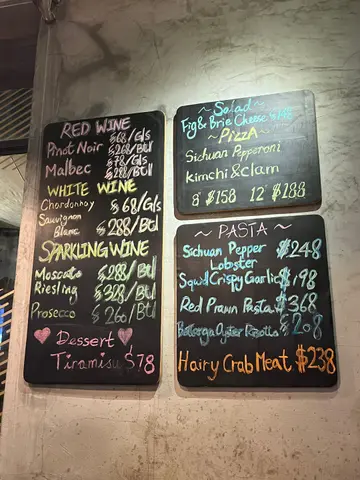 RED WINE
Pinot Noir $68/Gls
$268/Btl
Malbec $78/Gls
$288/Btl
WHITE WINE
Chardonnay $68/Gls
Sauvignon
Blanc $288/Btl
SPARKLING WINE
Moscato $288/Btl
Riesling $328/Btl
Prosecco $260/Btl
Dessert
Tiramisu $78
~ Salad ~
Fig & Brie Cheese $198
~ PIZZA ~
Sichuan Pepperoni
Kimchi & Clam
8 $158 12 $188
~ PASTA ~
Sichuan Pepper $248
Lobster
Squid Crispy Garlic $198
Red Prawn Pasta $368
Bottarga Oyster Risotto
Hairy Crab Meat $238